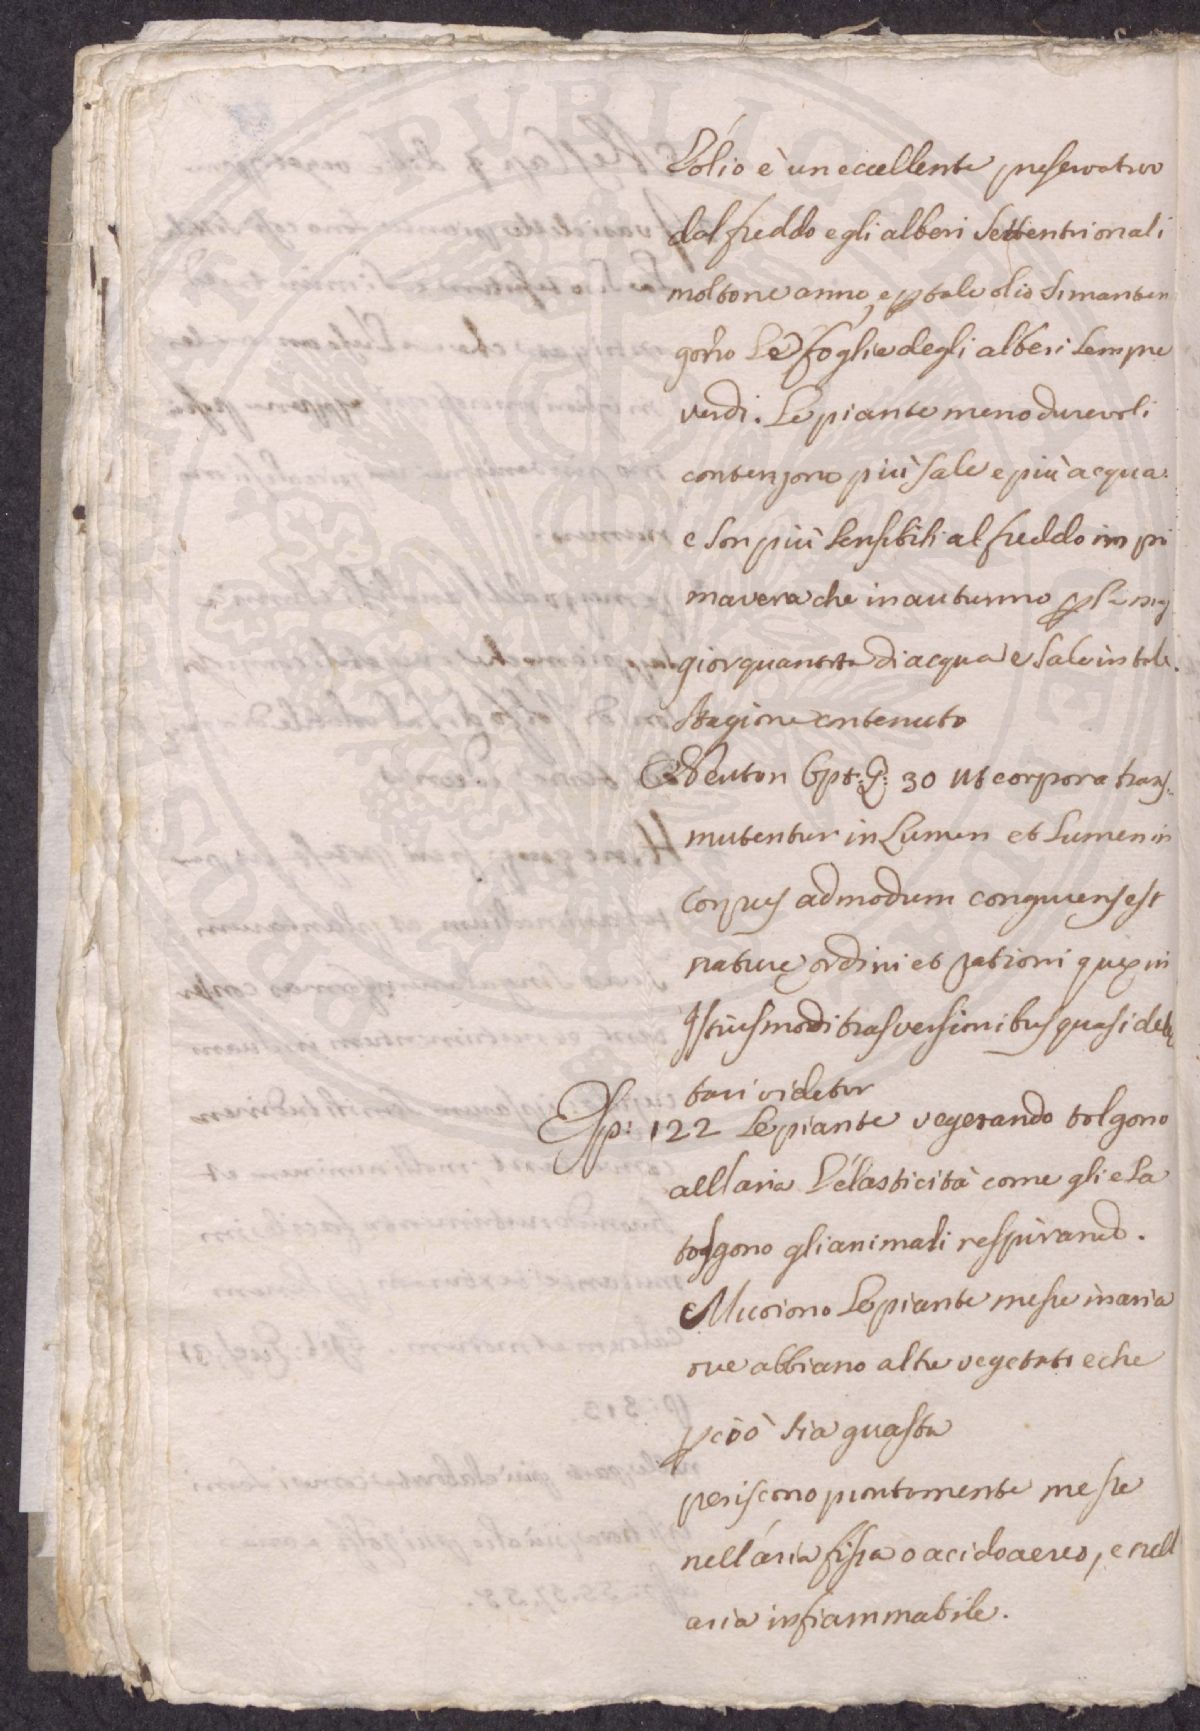 L'olio è un eccellente preservativo
dal freddo e gli alberi settentrionali
molto ne anno, e p tale olio si manten
gono le foglie degli alberi sempre
verdi. Le piante meno durevoli
contengono più sale e più acqua
e son più sensibili al freddo in pri
mavera che in autunno p la mag
gior quantità di acqua e sale in tale
stagione contenuto
Neuton Opt: Q: 30 Ut corpora trans
mutentur in Lumen et Lumen in
corpus admodum congruens est
naturę ordini et rationi quę in
istiusmodi trasversionibus quasi delec
tari videtur
Esp: 122 Le piante vegetando tolgono
all'aria l'elasticità come gliela
tolgono gli animali respirando.
Muoiono le piante messe in aria
ove abbiano altre vegetati e che
p ciò sia guasta
periscono prontamente messe
nell'aria fissa o acido aereo, e nell
aria infiammabile.
PVBLICE